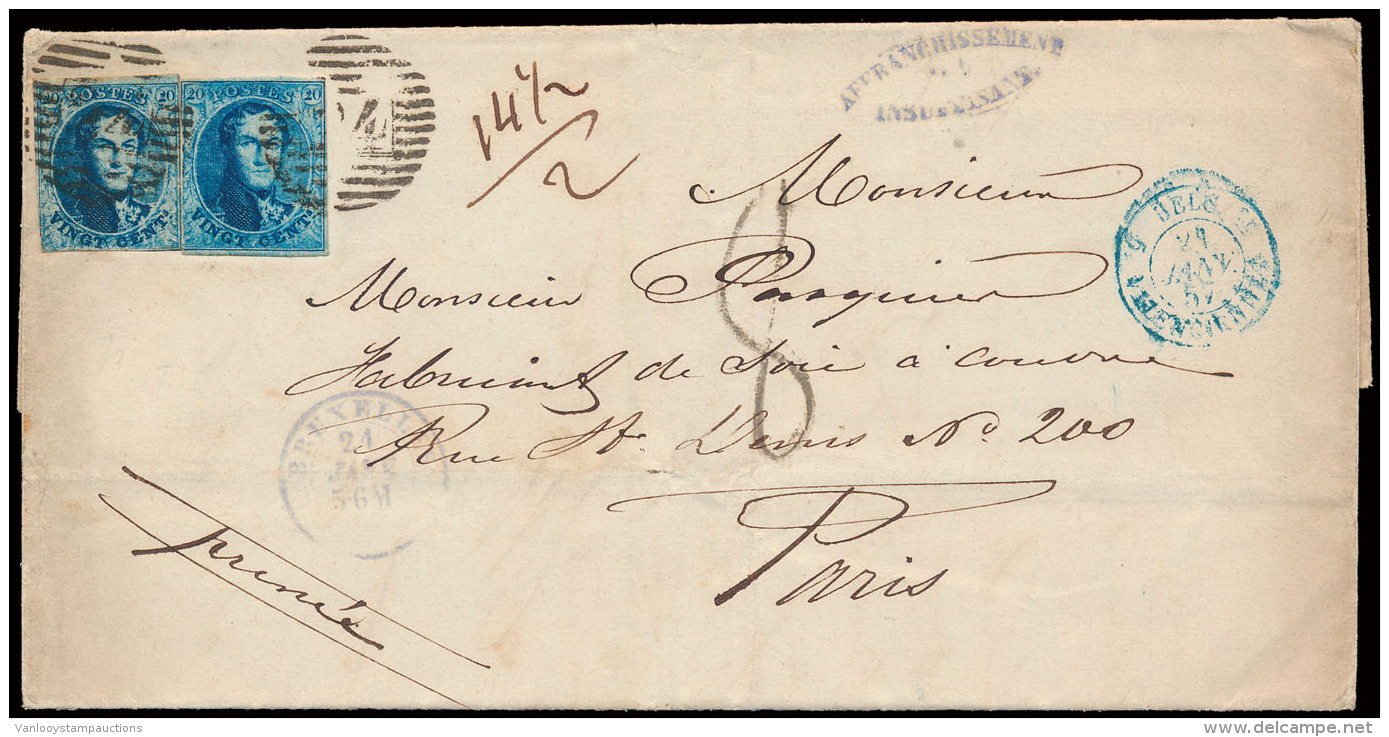 20 POSTES 20
VINGT CENTS
20 POSTES 20
VINGT CENTS
24
14 1/2
/ 2
AFFRANCHISSEMENT
INSUFFISANT
BELG.
21
JANV.
57
VALENCIENNES
8
Monsieur
Monsieur Pasquier
Fabricant de Soie à coudre
Rue St. Denis No. 200
Paris
BRUXELLES
21
JANV
5-6M
pressée
Vanlooystampauctions
www.delcampe.net